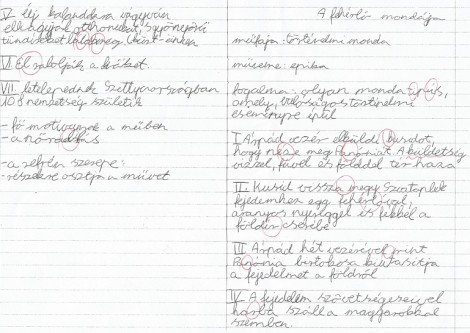 V. Éj kalandozva vágyván
elhagyják otthonukat, gyönyörű
tündéreket
VI. El rabolják a nőiket.
VII. letelepednek Szittyaországban
108 nemzetség születik
- fő motívumok a műben
- a nőrablás
- a refrén szerepe:
- részekre osztja a művet
A fehérló mondája
műfaja: történelmi monda
műneme: epika
fogalma: olyan monda típus,
amely, valóságos történelmi
eseményre épül
I Árpád vezér elküldi kusidot,
hogy nézze meg Panóniát. A küldetség
vízzel, füvel és földdel tér haza
II. Kusid vissza megy Szvatopluk
fejedemhez egy fehérlóval,
aranyos nyereggel és fékkel a
földért cserébe
III Árpád hét vezérével mint
Panónia birtokosa kiutasítja
a fejedelmet a földről
IV. A fejedelem szövetségeseivel
harba száll a magyarokkal
szemben.